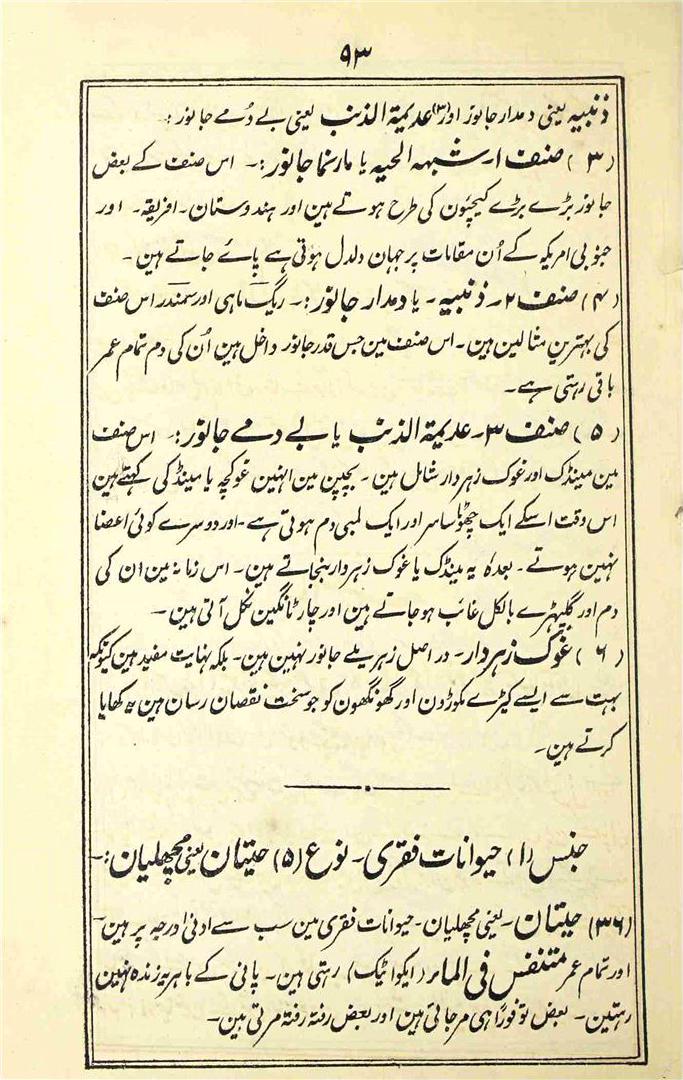 ۹۳
ذنبیہ یعنی دمدار جانور اور (۳) عدیمۃ الذنب یعنی بے دُمے جانور :
(۳) صنف ۱۔ شبہہ الحیہ یا مارنما جانور :۔ اس صنف کے بعض
جانور بڑے بڑے کیچؤن کی طرح ہوتے ہین اور ہندوستان۔ افریقہ۔ اور
جنوبی امریکہ کے اُن مقامات پر جہان دلدل ہوتی ہے پائے جاتے ہین۔
(۴) صنف ۲۔ ذنبیہ۔ یا دمدار جانور :۔ ریگ ماہی اور سمندر اس صنف
کی بہترین مثالین ہین۔ اس صنف مین جس قدر جانور داخل ہین اُن کی دم تمام عمر
باقی رہتی ہے۔
(۵) صنف ۳۔ عدیمۃ الذنب یا بے دمے جانور :۔ اس صنف
مین مینڈک اور غوک زہردار شامل ہین۔ بچپن مین انہین غوکچہ یا مینڈکی کہتے ہین
اس وقت اسکے ایک چھوٹا سا سر اور ایک لمبی دم ہوتی ہے۔ اور دوسرے کوئی اعضا
نہین ہوتے۔ بعدہٗ یہ مینڈک یا غوک زہردار بنجاتے ہین۔ اس زمانہ مین ان کی
دم اور گلپہڑے بالکل غائب ہو جاتے ہین اور چار ٹانگین نکل آتی ہین۔
(۶) غوک زہردار۔ در اصل زہریلے جانور نہین ہین۔ بلکہ نہایت مفید ہین کیونکہ
بہت سے ایسے کیڑے مکوڑون اور گھونگھون کو جو سخت نقصان رسان ہین یہ کھایا
کرتے ہین۔
جنس (۱) حیوانات فقری۔ نوع (۵) حیتان یعنی مچھلیان :۔
(۳۶) حیتان۔ یعنی مچھلیان۔ حیوانات فقری مین سب سے ادنیٰ درجہ پر ہین۔
اور تمام عمر متنفس فی الماء (ایکواٹیک) رہتی ہین۔ پانی کے باہر یہ زندہ نہین
رہتین۔ بعض تو فوراً ہی مر جاتی ہین اور بعض رفتہ رفتہ مرتی ہین۔